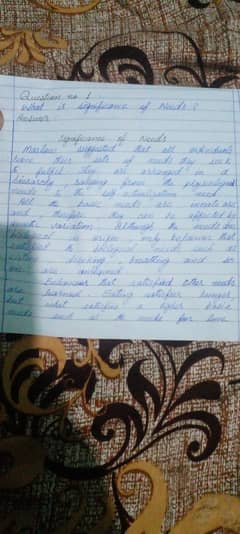 Question no 1
What is significance of Needs?
Answer
Significance of Needs
Maslow suggested that all individuals
have their sets of needs they seek
to fulfil. They are arranged in a
hierarchy, ranging from the physiological
needs to the self actualisation need.
All the basic needs are innate
and therefore they can be affected by
variation. Although the needs are
only behaviour that
satisfied the such as
eating, drinking, breathing and
are
Behaviour that satisfied other needs
are learned. Eating satisfies hunger
but not satisfies a higher basic
needs such as the needs for love